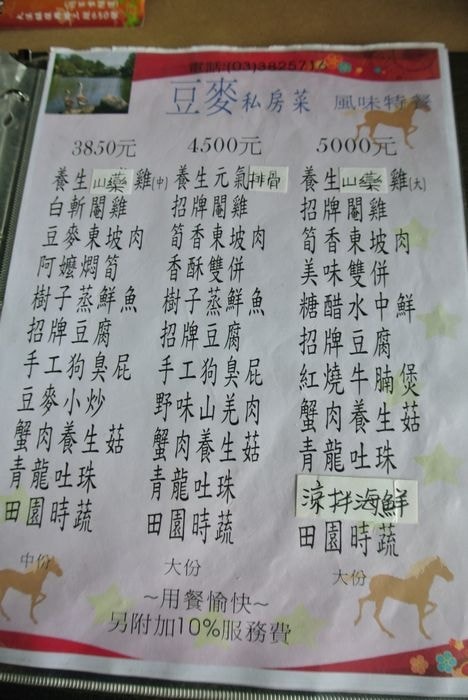 電話:(03)382571
豆麥私房菜 風味特餐
3850元 4500元 5000元
養生山藥雞(中) 養生元氣排骨 養生山藥雞(大)
白斬閹雞 招牌閹雞 招牌閹雞
豆麥東坡肉 筍香東坡肉 筍香東坡肉
阿嬤燜筍 香酥雙併 美味雙併
樹子蒸鮮魚 樹子蒸鮮魚 糖醋水中鮮
招牌豆腐 招牌豆腐 招牌豆腐
手工狗臭屁 手工狗臭屁 紅燒牛腩煲
豆麥小炒 野味山羌肉 蟹肉養生菇
蟹肉養生菇 蟹肉養生菇 青龍吐珠
青龍吐珠 青龍吐珠 涼拌海鮮
田園時蔬 田園時蔬 田園時蔬
中份 大份 大份
~用餐愉快~
另附加10%服務費